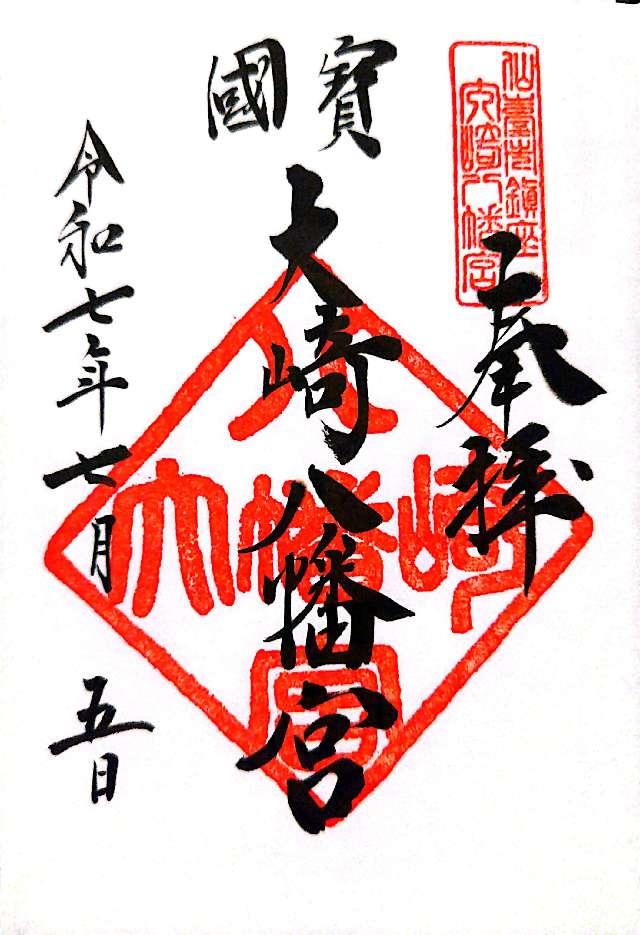 仙臺市鎮座
大崎八幡宮
奉拝
國寶
大崎八幡宮
八
大幡崎
宮
令和七年七月五日